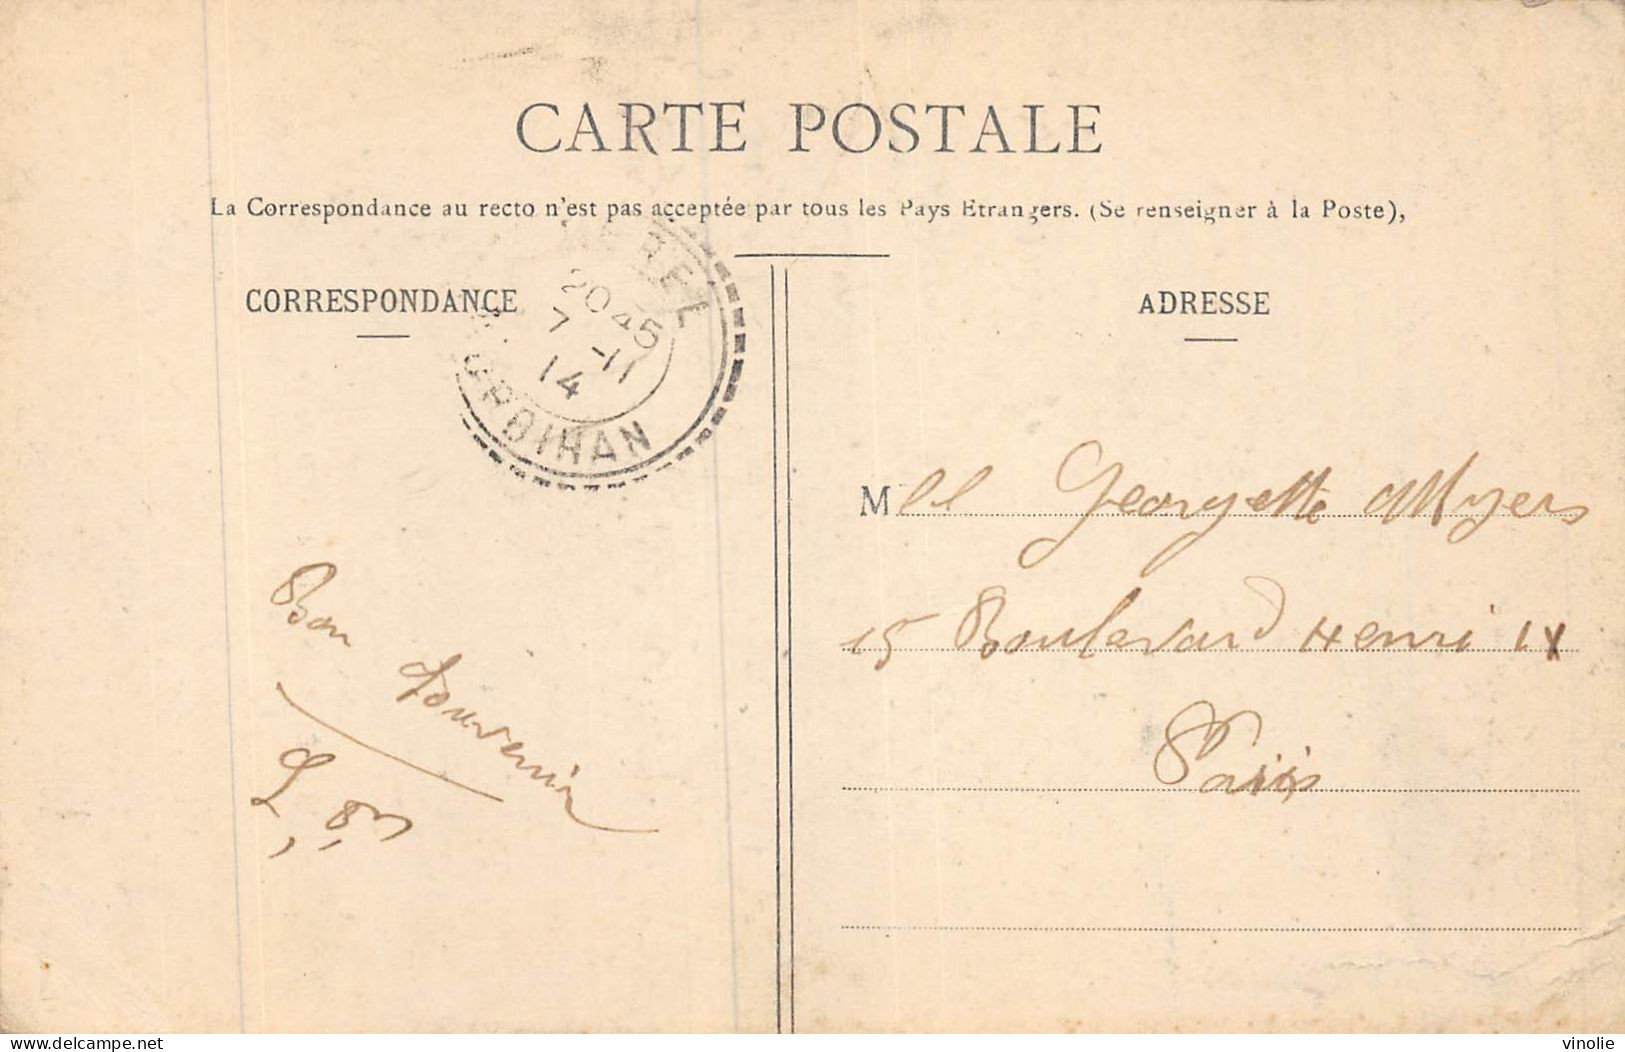 CARTE POSTALE
La Correspondance au recto n'est pas acceptée par tous les Pays Etrangers. (Se renseigner à la Poste),
CORRESPONDANCE
ADRESSE
20 45
7 -11
14
MORBIHAN
Mlle Georgette Myers
15 Boulevard Henri IX
Paris
Bon
Souvenir
delcampe.net
vinolie